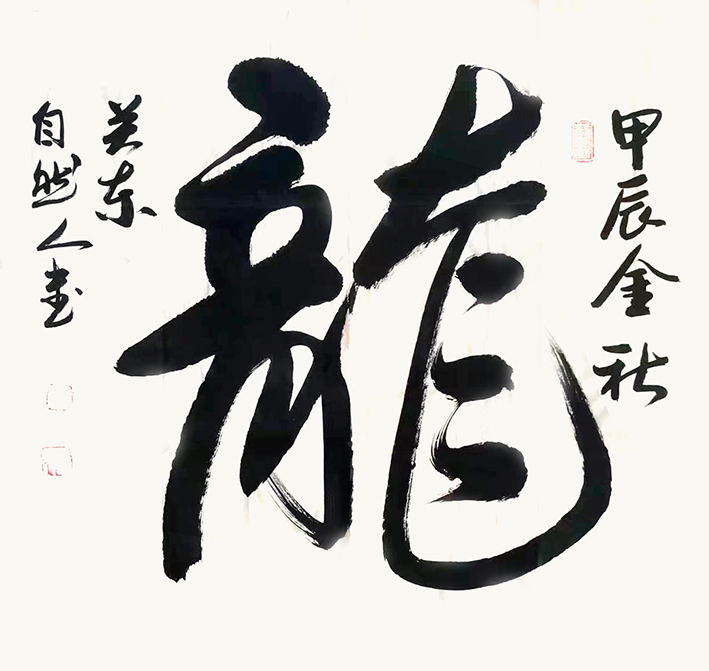 甲辰金秋
龍
关东
自然人书